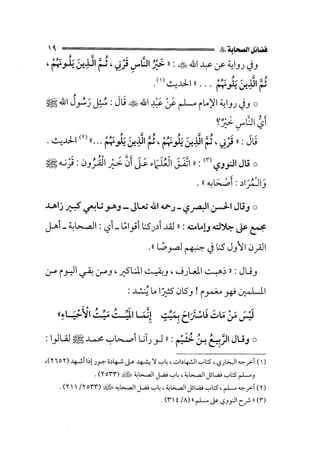 فضائل الصحابة ﷺ ١٩
وفي رواية عن عبد الله ﷺ : « خَيْرُ النَّاسِ قَرْنِي ، ثُمَّ الَّذِينَ يَلُونَهُمْ ،
ثُمَّ الَّذِينَ يَلُونَهُمْ . . . » الحديث (١).
○ وفي رواية الإمام مسلم عَنْ عَبْدِ الله ﷺ قَالَ : سُئِلَ رَسُولُ الله ﷺ
أَيُّ النَّاسِ خَيْرٌ؟
قَالَ : « قَرْنِي ، ثُمَّ الَّذِينَ يَلُونَهُمْ ، ثُمَّ الَّذِينَ يَلُونَهُمْ ...» (٢) الحديث .
○ قال النووي (٣) : « اتَّفَقَ الْعُلَمَاء عَلَى أَنَّ خَيْر الْقُرُون : قَرْنه ﷺ
وَالْمُرَاد : أَصْحَابه » .
○ وقال الحسن البصري ــ رحمه الله تعالى ــ وهو تابعي كبير زاهد
مجمع على جلالته وإمامته : « لقد أدركنا أقوامًا ــ أي : الصحابة ــ أهل
القرن الأول كنا في جنبهم لصوصًا ».
وقال : « ذهبت المعارف ، وبقيت المناكير ، ومن بقي اليوم من
المسلمين فهو مغموم ! وكان كثيرًا ما يُنشد :
لَيْسَ مَنْ مَاتَ فَاسْتَرَاحَ بِمَيِّتٍ إِنَّمَا الْمَيْتُ مَيِّتُ الْأَحْيَاءِ»
○ وقال الرَّبِيعُ بنُ خُثَيْم : « لو رآنا أصحاب محمد ﷺ لقالوا :
(١) أخرجه البخاري ، كتاب الشهادات ، باب لا يشهد على شهادة جور إذا أشهد (٢٦٥٢)،
ومسلم كتاب فضائل الصحابة ، باب فضل الصحابة ﷺ (٢٥٣٣) .
(٢) أخرجه مسلم ، كتاب فضائل الصحابة ، باب فضل الصحابه ﷺ (٢٥٣٣/ ٢١١) .
(٣) « شرح النووي على مسلم » (٨/ ٣١٤) .